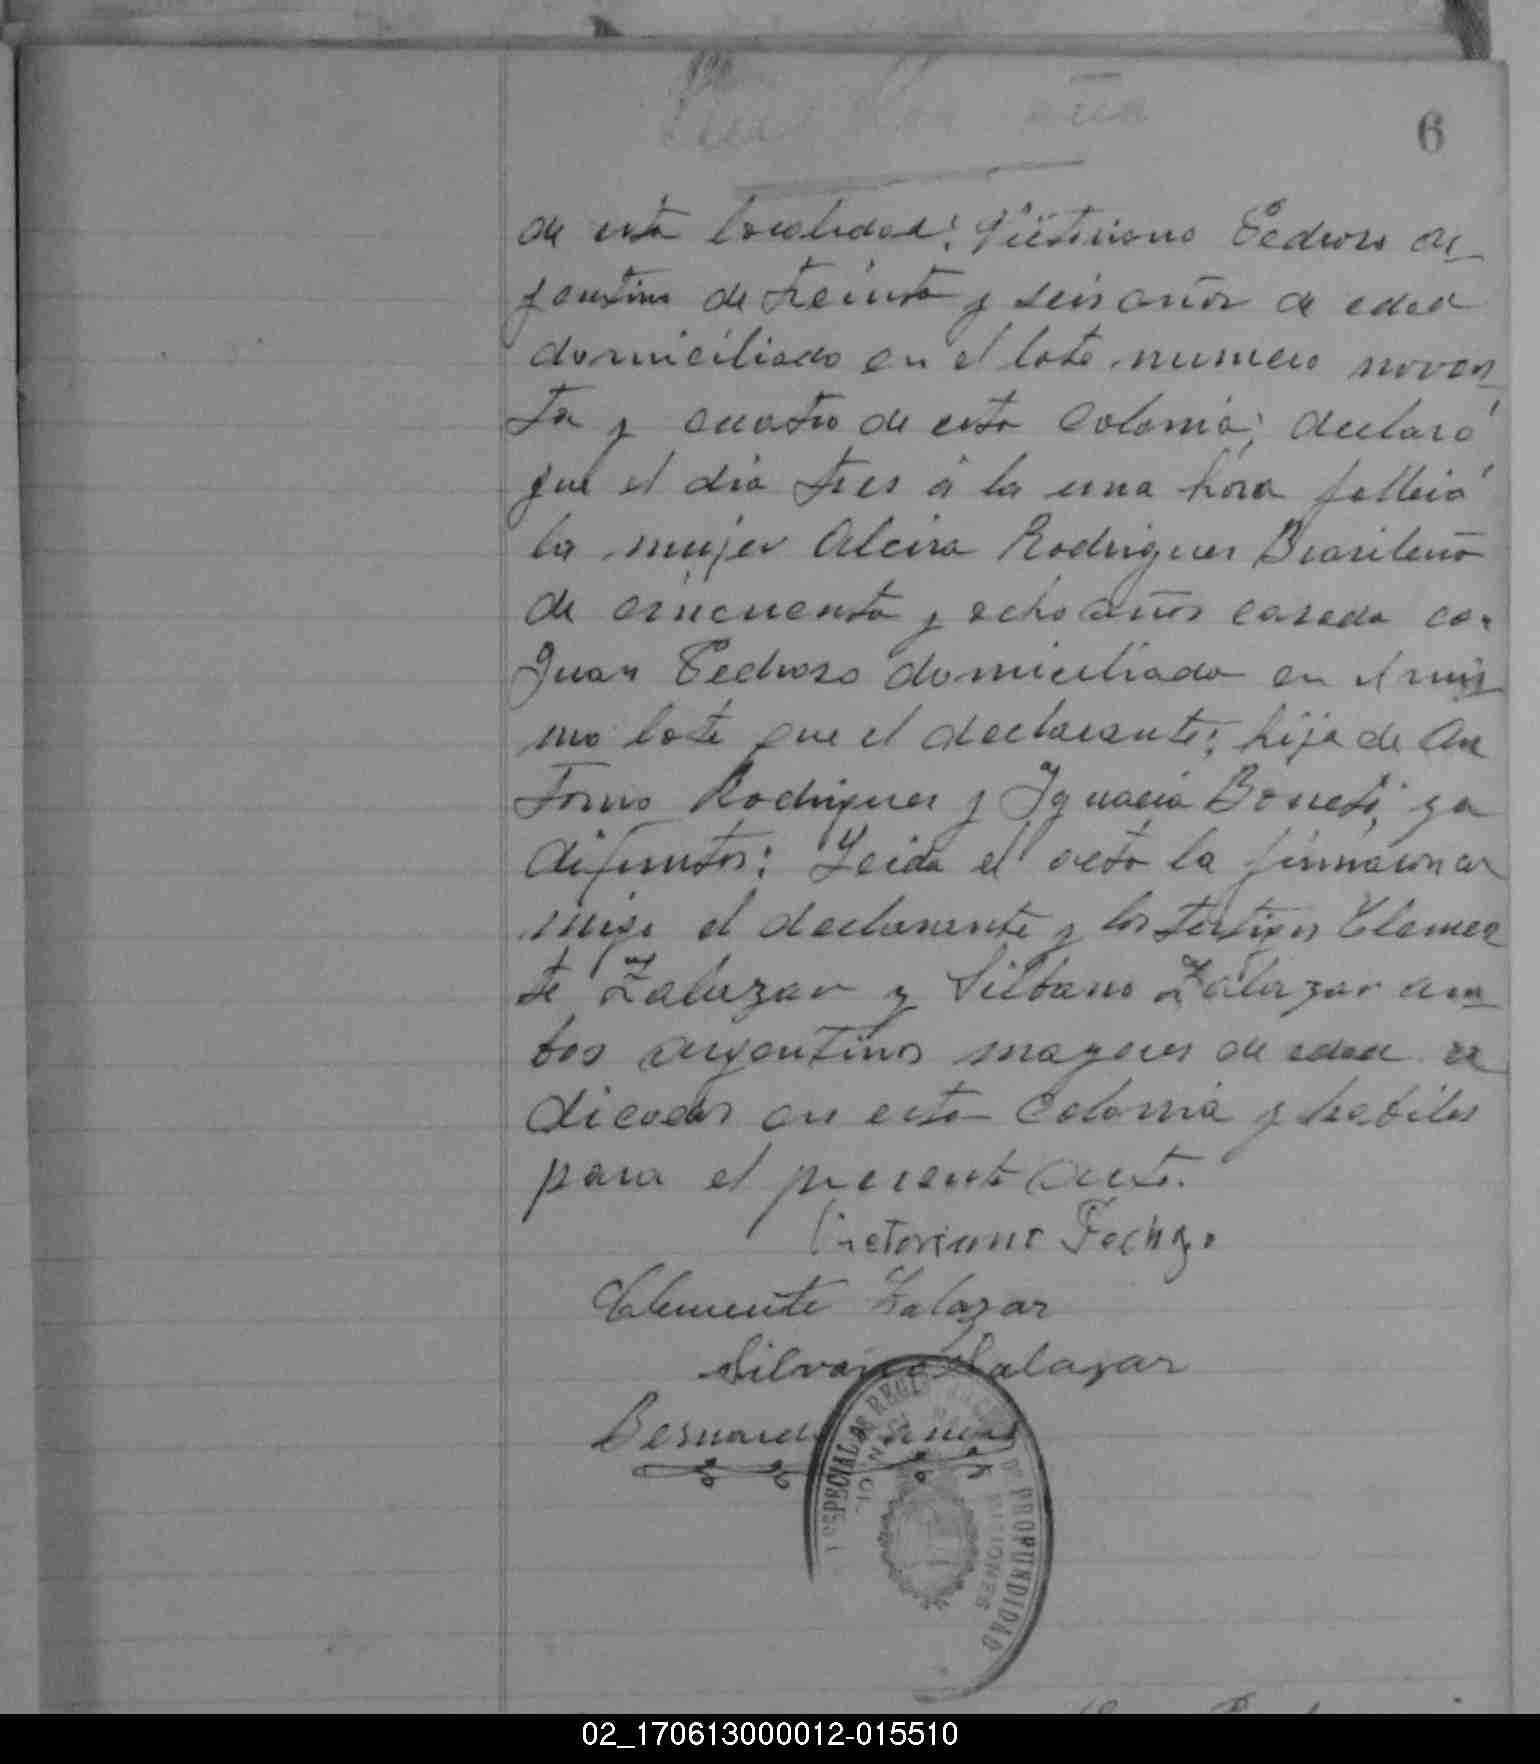 6
de esta localidad; Victoriano Pedrozo ar-
jentino de treinta y seis años de edad
domiciliado en el lote numero noven-
ta y cuatro de esta Colonia; declaró
que el dia tres á la una hora falleció
la mujer Alcira Rodriguez Brasileña
de cincuenta y ocho años casada con
Juan Pedrozo domiciliado en el mis-
mo lote que el declarante; hija de An
tonio Rodriguez y Ignacia Boneti, ya
difuntos: Leida el acta la firmaron con
migo el declarante y los testigos Clemen
te Zalazar y Silbano Zalazar am-
bos argentinos mayores de edad ra
dicados en esta Colonia y habiles
para el presente acto.
Victoriano Pedrozo
Clemente Zalazar
Silvano Salazar
Bernardo
ESPECIAL DE REGISTRO PROFUNDIDAD
MISIONES
02_170613000012-015510